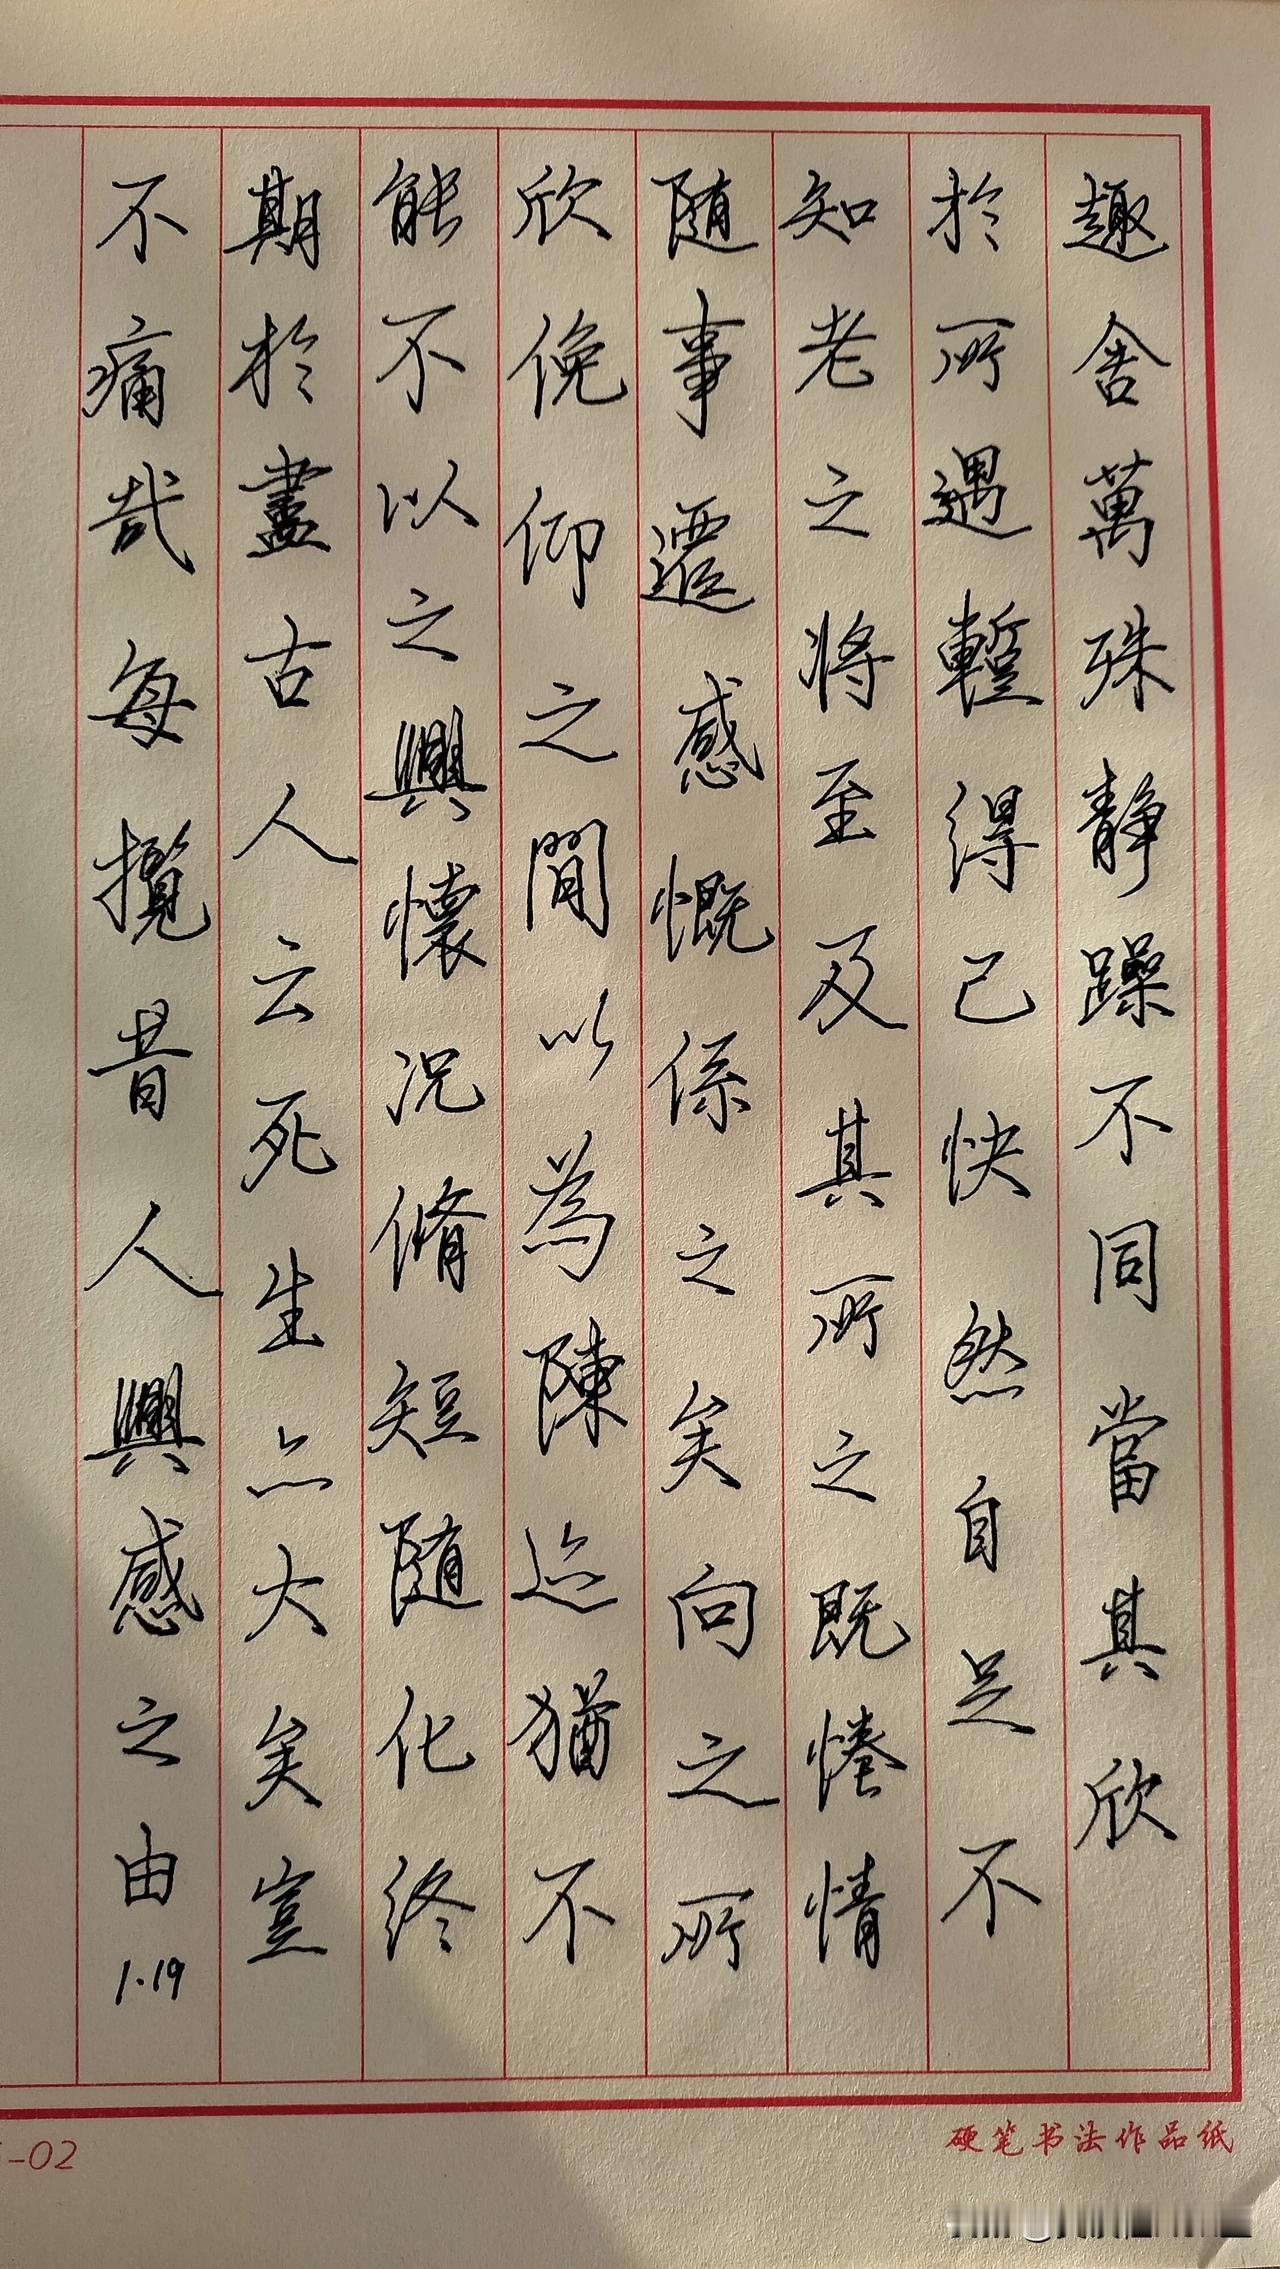 趣舍萬殊静躁不同當其欣
於所遇蹔得己快然自足不
知老之将至及其所之既惓情
随事遷感慨係之矣向之所
欣俛仰之閒以為陳迹猶不
能不以之興懷况脩短随化終
期於盡古人云死生亦大矣豈
不痛哉每攬昔人興感之由
1.19
-02
硬笔书法作品纸